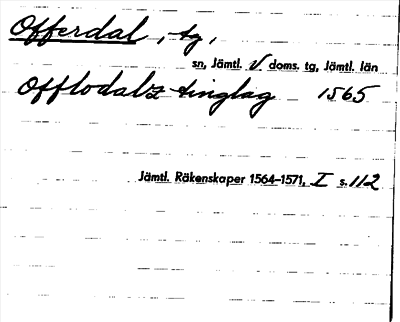 Offerdal, tg,
sn, Jämtl. V doms. tg, Jämtl. län
Offlodalz tinglag 1565
Jämtl. Räkenskaper 1564-1571, I s. 112